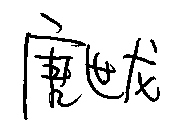 唐世龙